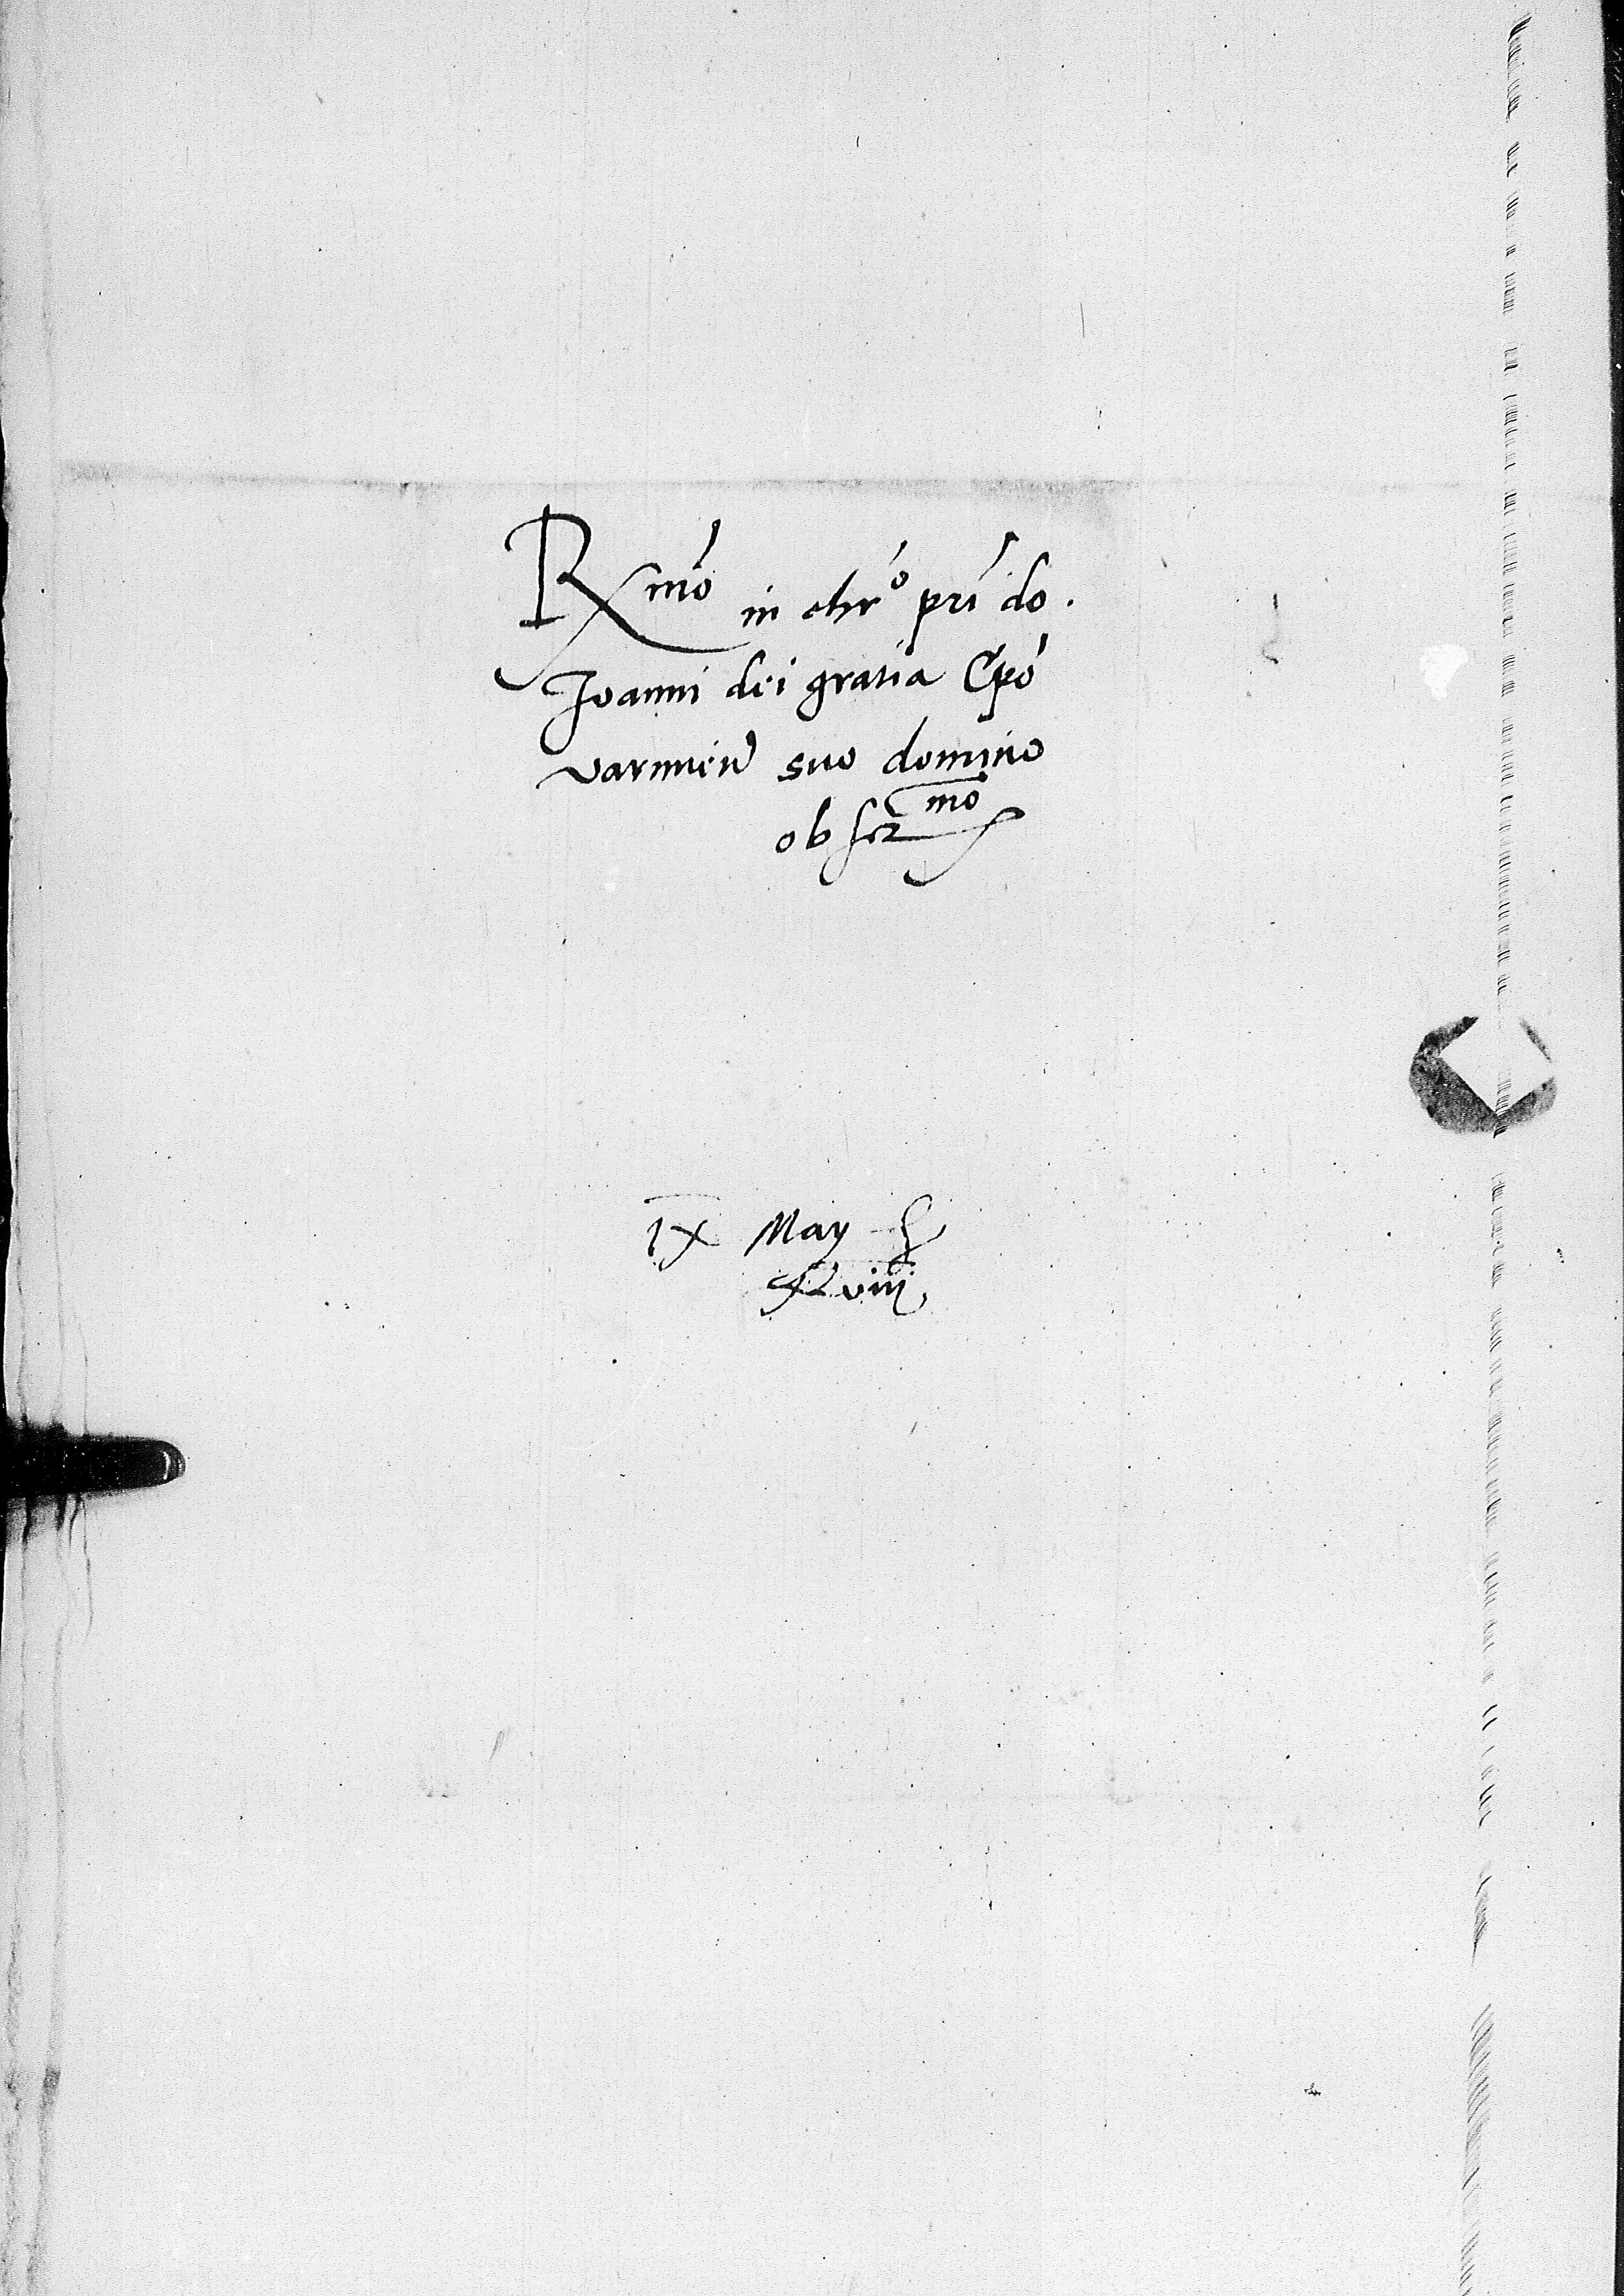 Rmo in chro pri do.
Joanni dei gratia Epo
varmien suo domino
obsermo
IX May
XLviij